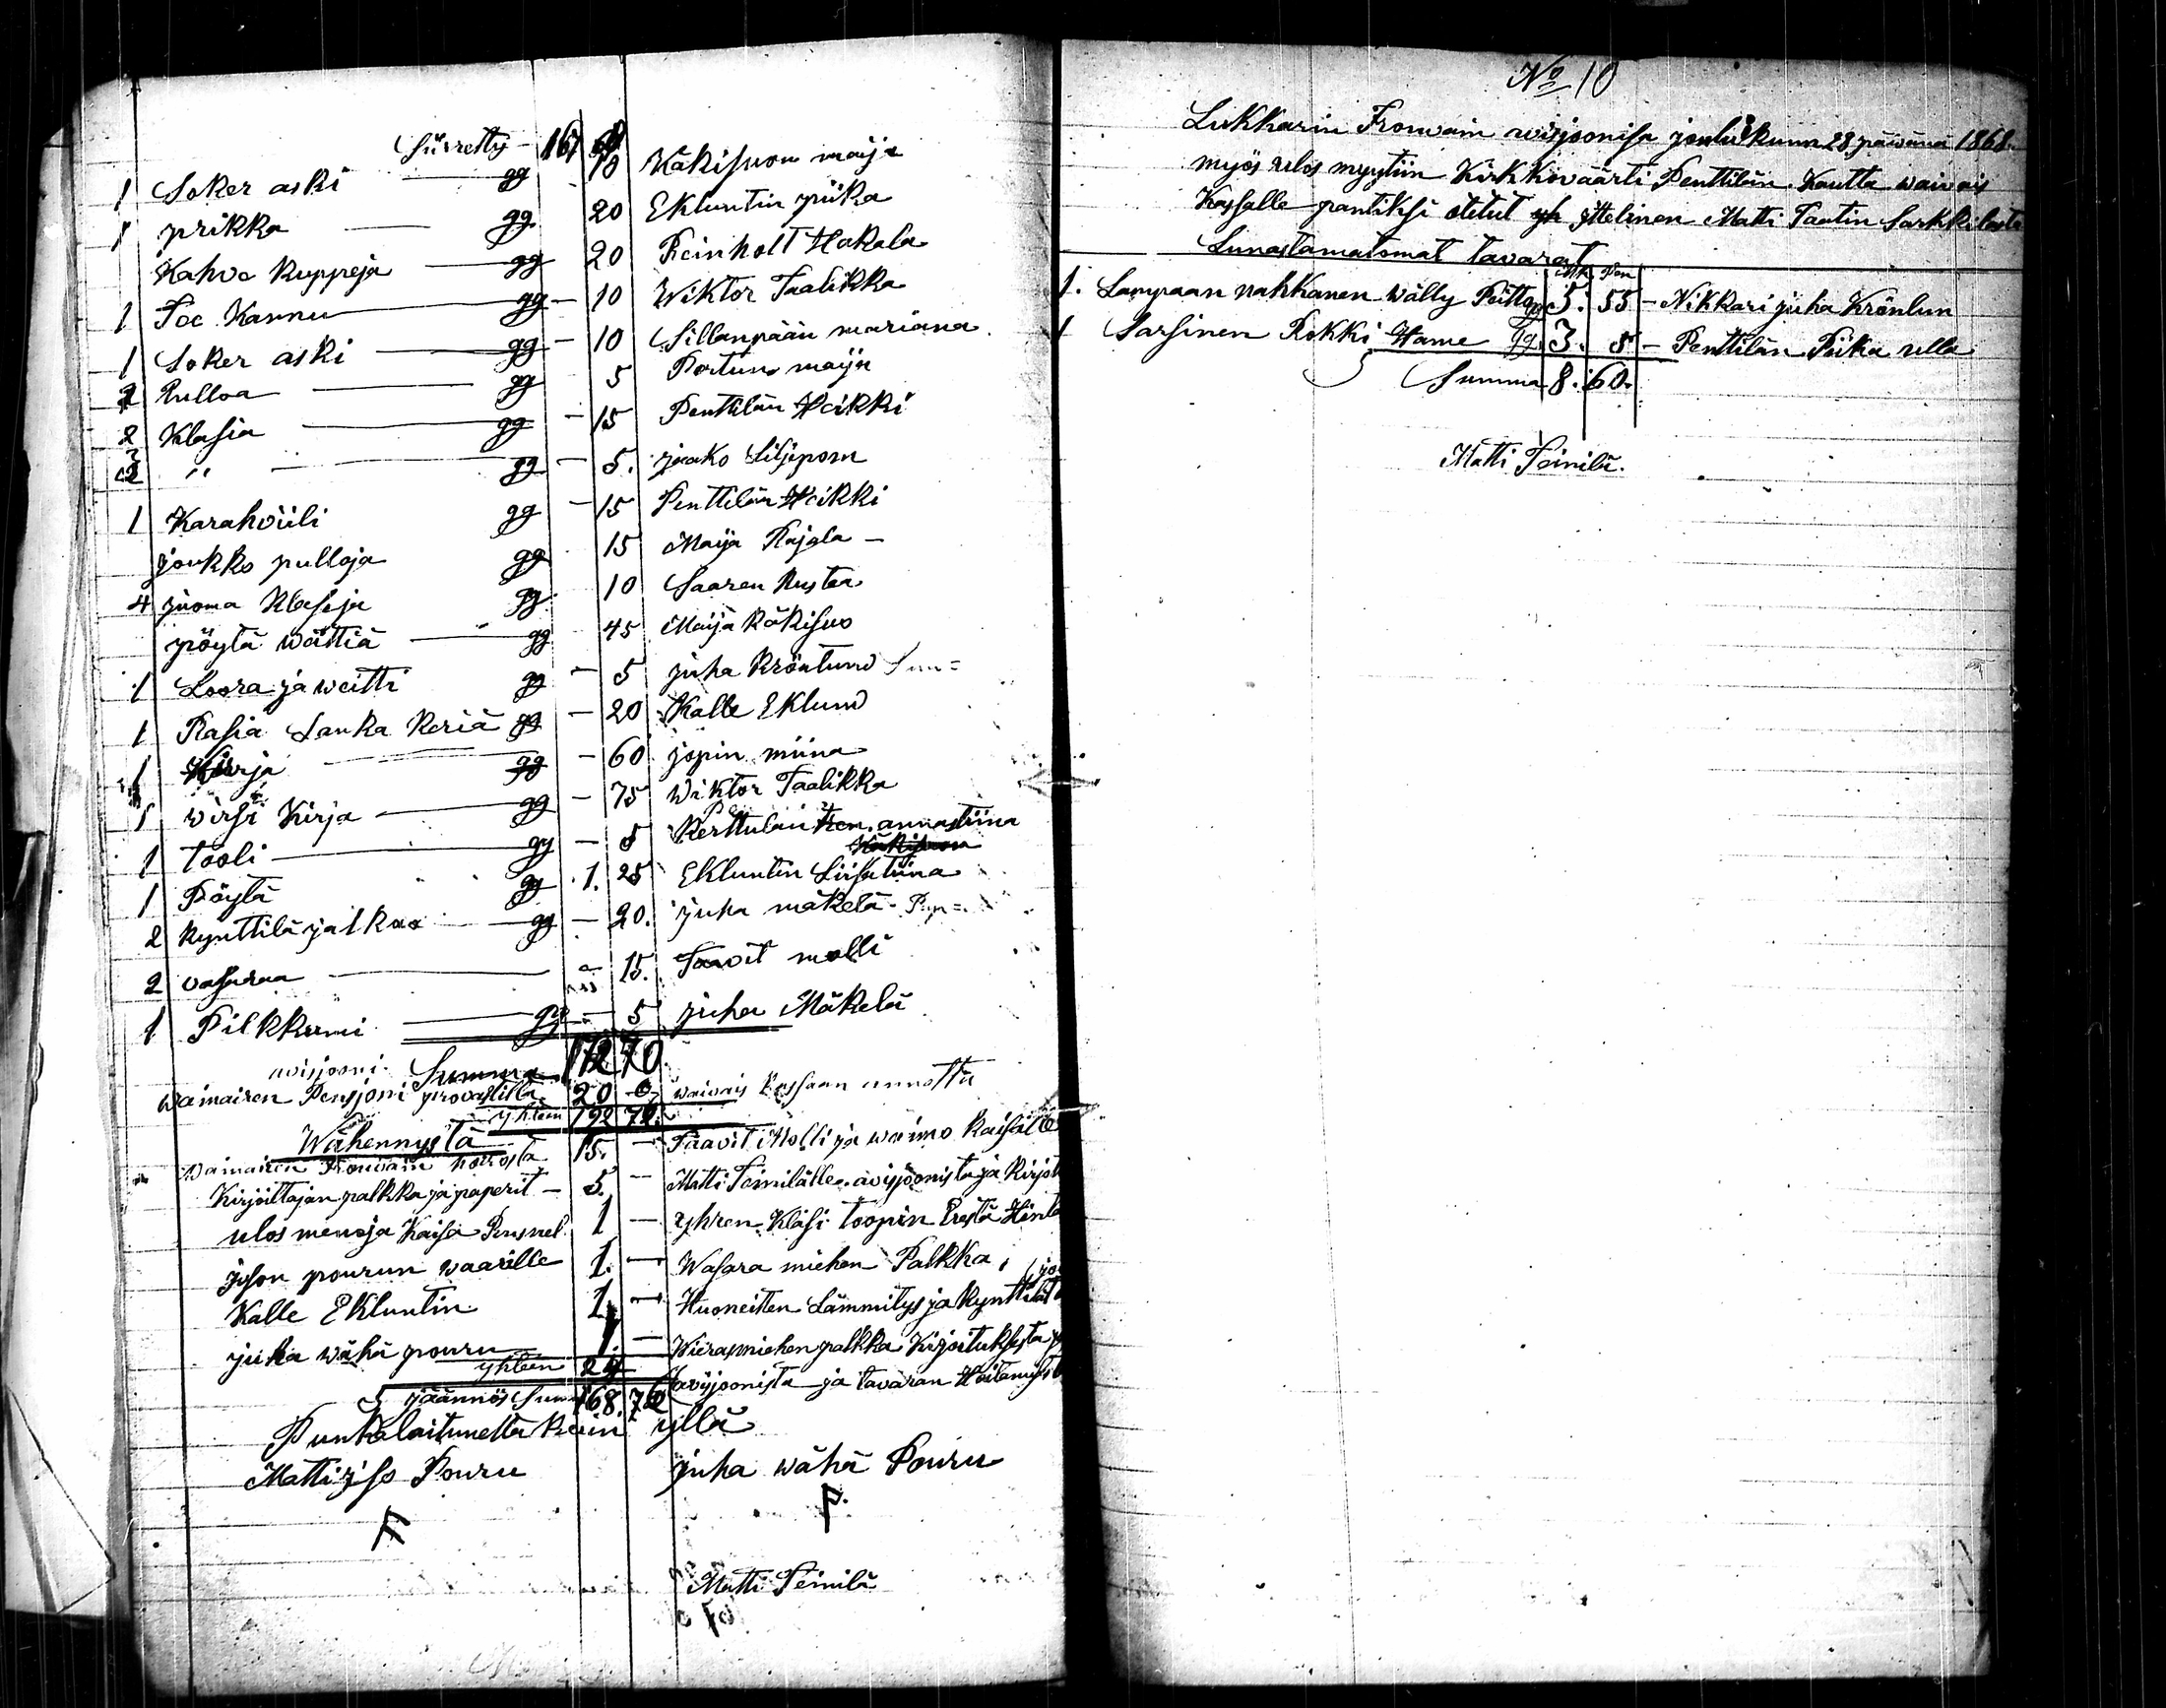 Siirretty - 167
1 Soker aski gg 10 Käkisuon maija
1 prikka gg 20 Ekluntin piika
Kahve kuppeja gg 20 Reinholt Hakala
1 Toe Kannu gg - 10 Wiktor Taalikka
1 Soker aski gg - 10 Sillanpään mariana
2 Pulloa gg 5 Portuno maija
2 Klasia gg - 15 Penttilän Heikki
2 " gg - 5. jaako Liljeporn
1 Karahviili gg - 15 Penttilän Heikki
joukko pulloja gg 15 Maija Rajala -
4 juoma klaseja gg 10 Saaren kustaa
pöytä wättiä gg 45 Maija käkisuo
1 Loora ja weitti gg - 5 juha krönlund
1 Rasia Lanka keriä gg - 20 Kalle Eklund
1 Kirja gg - 60 jopin miina
1 wirsi Kirja gg - 75 Wiktor Taalikka
1 tooli gg - 5 Perttulan annastiina
1 Pöytä gg 1. 25 Ekluntin Liisastiina
2 kynttilä jalkaa gg - 20. juha mäkelä
2 vasaraa 15. Taavit molli
1 Pilkkumi gg - 5 juha Mäkelä
avisjooni. Summa 172 70
wainairen Pensjoni provastilta 20 0 waivais kassaan annettu
yhteen 192 70.
Wähennystä
wainairen Frouvain hoirosta 15. - Taavit Molli ja waimo kaisalle
Kirjoittajan palkka ja paperit - 5. - Matti Teinilälle avisjoonista ja kirjot
ulos menoja Kaisa 1 - yhren Klasi toopin Erestä Hinta
json pourun waarille 1. - Wasara miehen Palkka,
Kalle Ekluntin 1. - Huoneitten Lämmitys ja kynttilät
juha wähä pouru 1. - Wierasmiehen palkka Kirjoituksesta
yhteen 24 avisjoonista ja tavaran
jäännös Sum 168. 70
Punkalaitumella kuin yllä
Matti jso Pouru juha wähä Pouru
P.
Matti Teinilä
No 10
Lukkarin Frouvain avisjoonisa joulukuun 28 päiwänä 1868.
myös ulos myytiin Kirkkoväärti Penttilän Kautta waivais
Kassalle pantiksi otetut ittelinen Matti Taatin Sarkkilasta
Lunastamatomat tavarat
Mk Pen
1. Lampaan nahkanen wälly Peitto gg 5. 55 - Nikkari juha Krönlun
1 Sarsinen Rokki Hame gg 3. 5 - Penttilän Piika ulla
Summa 8. 60.
Matti Teinilä.